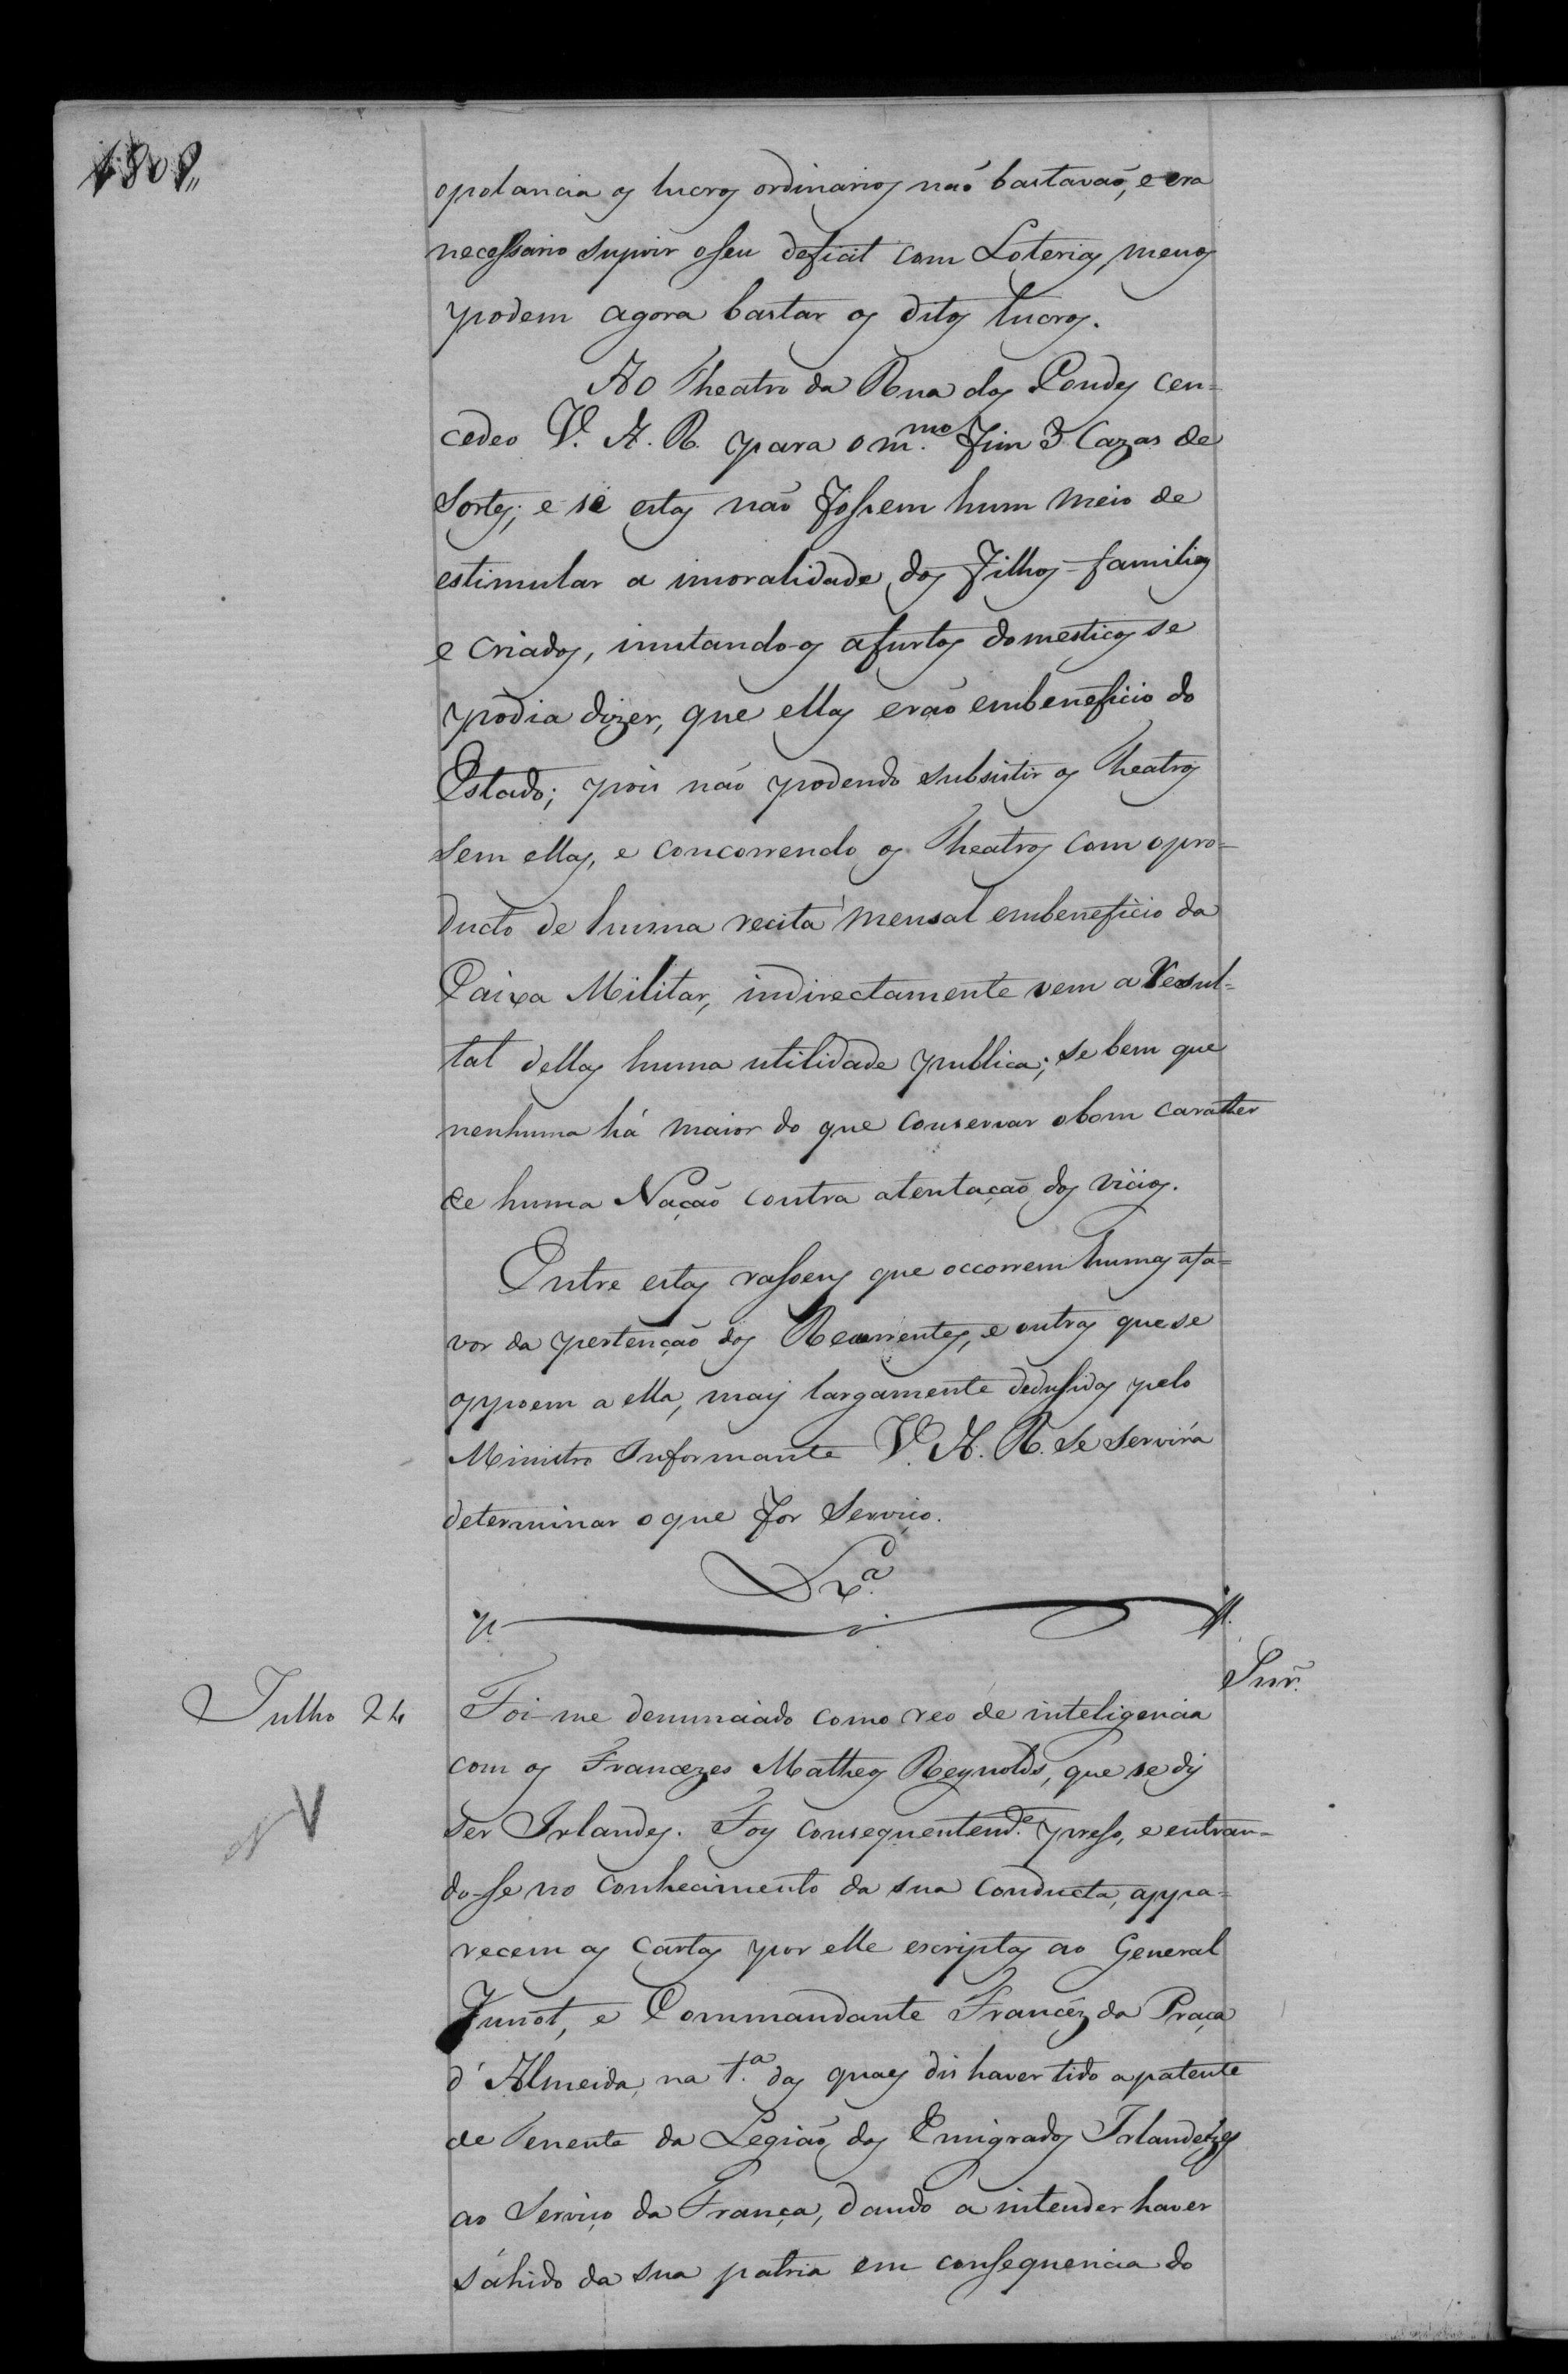 1809,,
opolancia os lucros ordinarios naõ bastavaõ, e era
necessario suprir o seu deficit com Loterias, menos
podem agora bastar os ditos lucros.
Ao Theatro da Rua dos Condes con=
cedeo V. A. R. para o m.mo Fim 3 Cazas de
Sortes; e se estas naõ Fossem hum meio de
estimular a imoralidade dos Filhos-familias
e Criados, incitando-os a furtos domesticos se
podia dizer, que ellas eraõ em beneficio do
Estado; pois naõ podendo subsistir os Theatros
sem ellas, e concorrendo os Theatros com o pro=
ducto de huma recita mensal em beneficio da
Caixa Militar, indirectamente vem a Resul=
tat dellas huma utilidade publica; se bem que
nenhuma há maior do que conservar o bom carather
de huma Naçaõ contra atentaçaõ dos vicios.
Entre estas rasoens que occorrem humas afa=
vor da pertençaõ dos Recorrentes, e outras que se
oppoem a ella, mais largamente dedusidas pelo
Ministro Informante V. A. R. se servirá
determinar o que For Serviço.
Lx.ª
Snr.
Julho 24
Foi-me denunciado como reo de inteligencia
com os Francezes Matheos Reynolds, que se diz
ser Irlandez. Foy consequentem.e preso, e entran=
do-se no conhecimento da sua conducta, appa=
recem as Cartas por elle escriptas ao General
Junot, e Commandante Francéz da Praça
d'Almeida, na 1.ª das quaes dis haver tido a patente
de Tenente da Legiaõ dos Emigrados Irlandezes
ao Serviço da França, dando a intender haver
sahido da sua patria em consequencia do